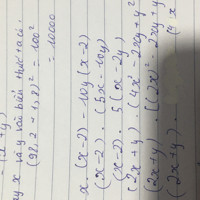 (x+y)
ay x và y vào biến thức ta có:
(98,2 + 1,8)² = 100²
= 10000
x (x-2) - 10y (x-2)
(x-2) . (5x-10y)
(x-2) . 5(x-2y)
(2x+y) . (4x² - 2xy + y²
(2x+y) . [(2x² - 2xy + y²
(2x+y) .